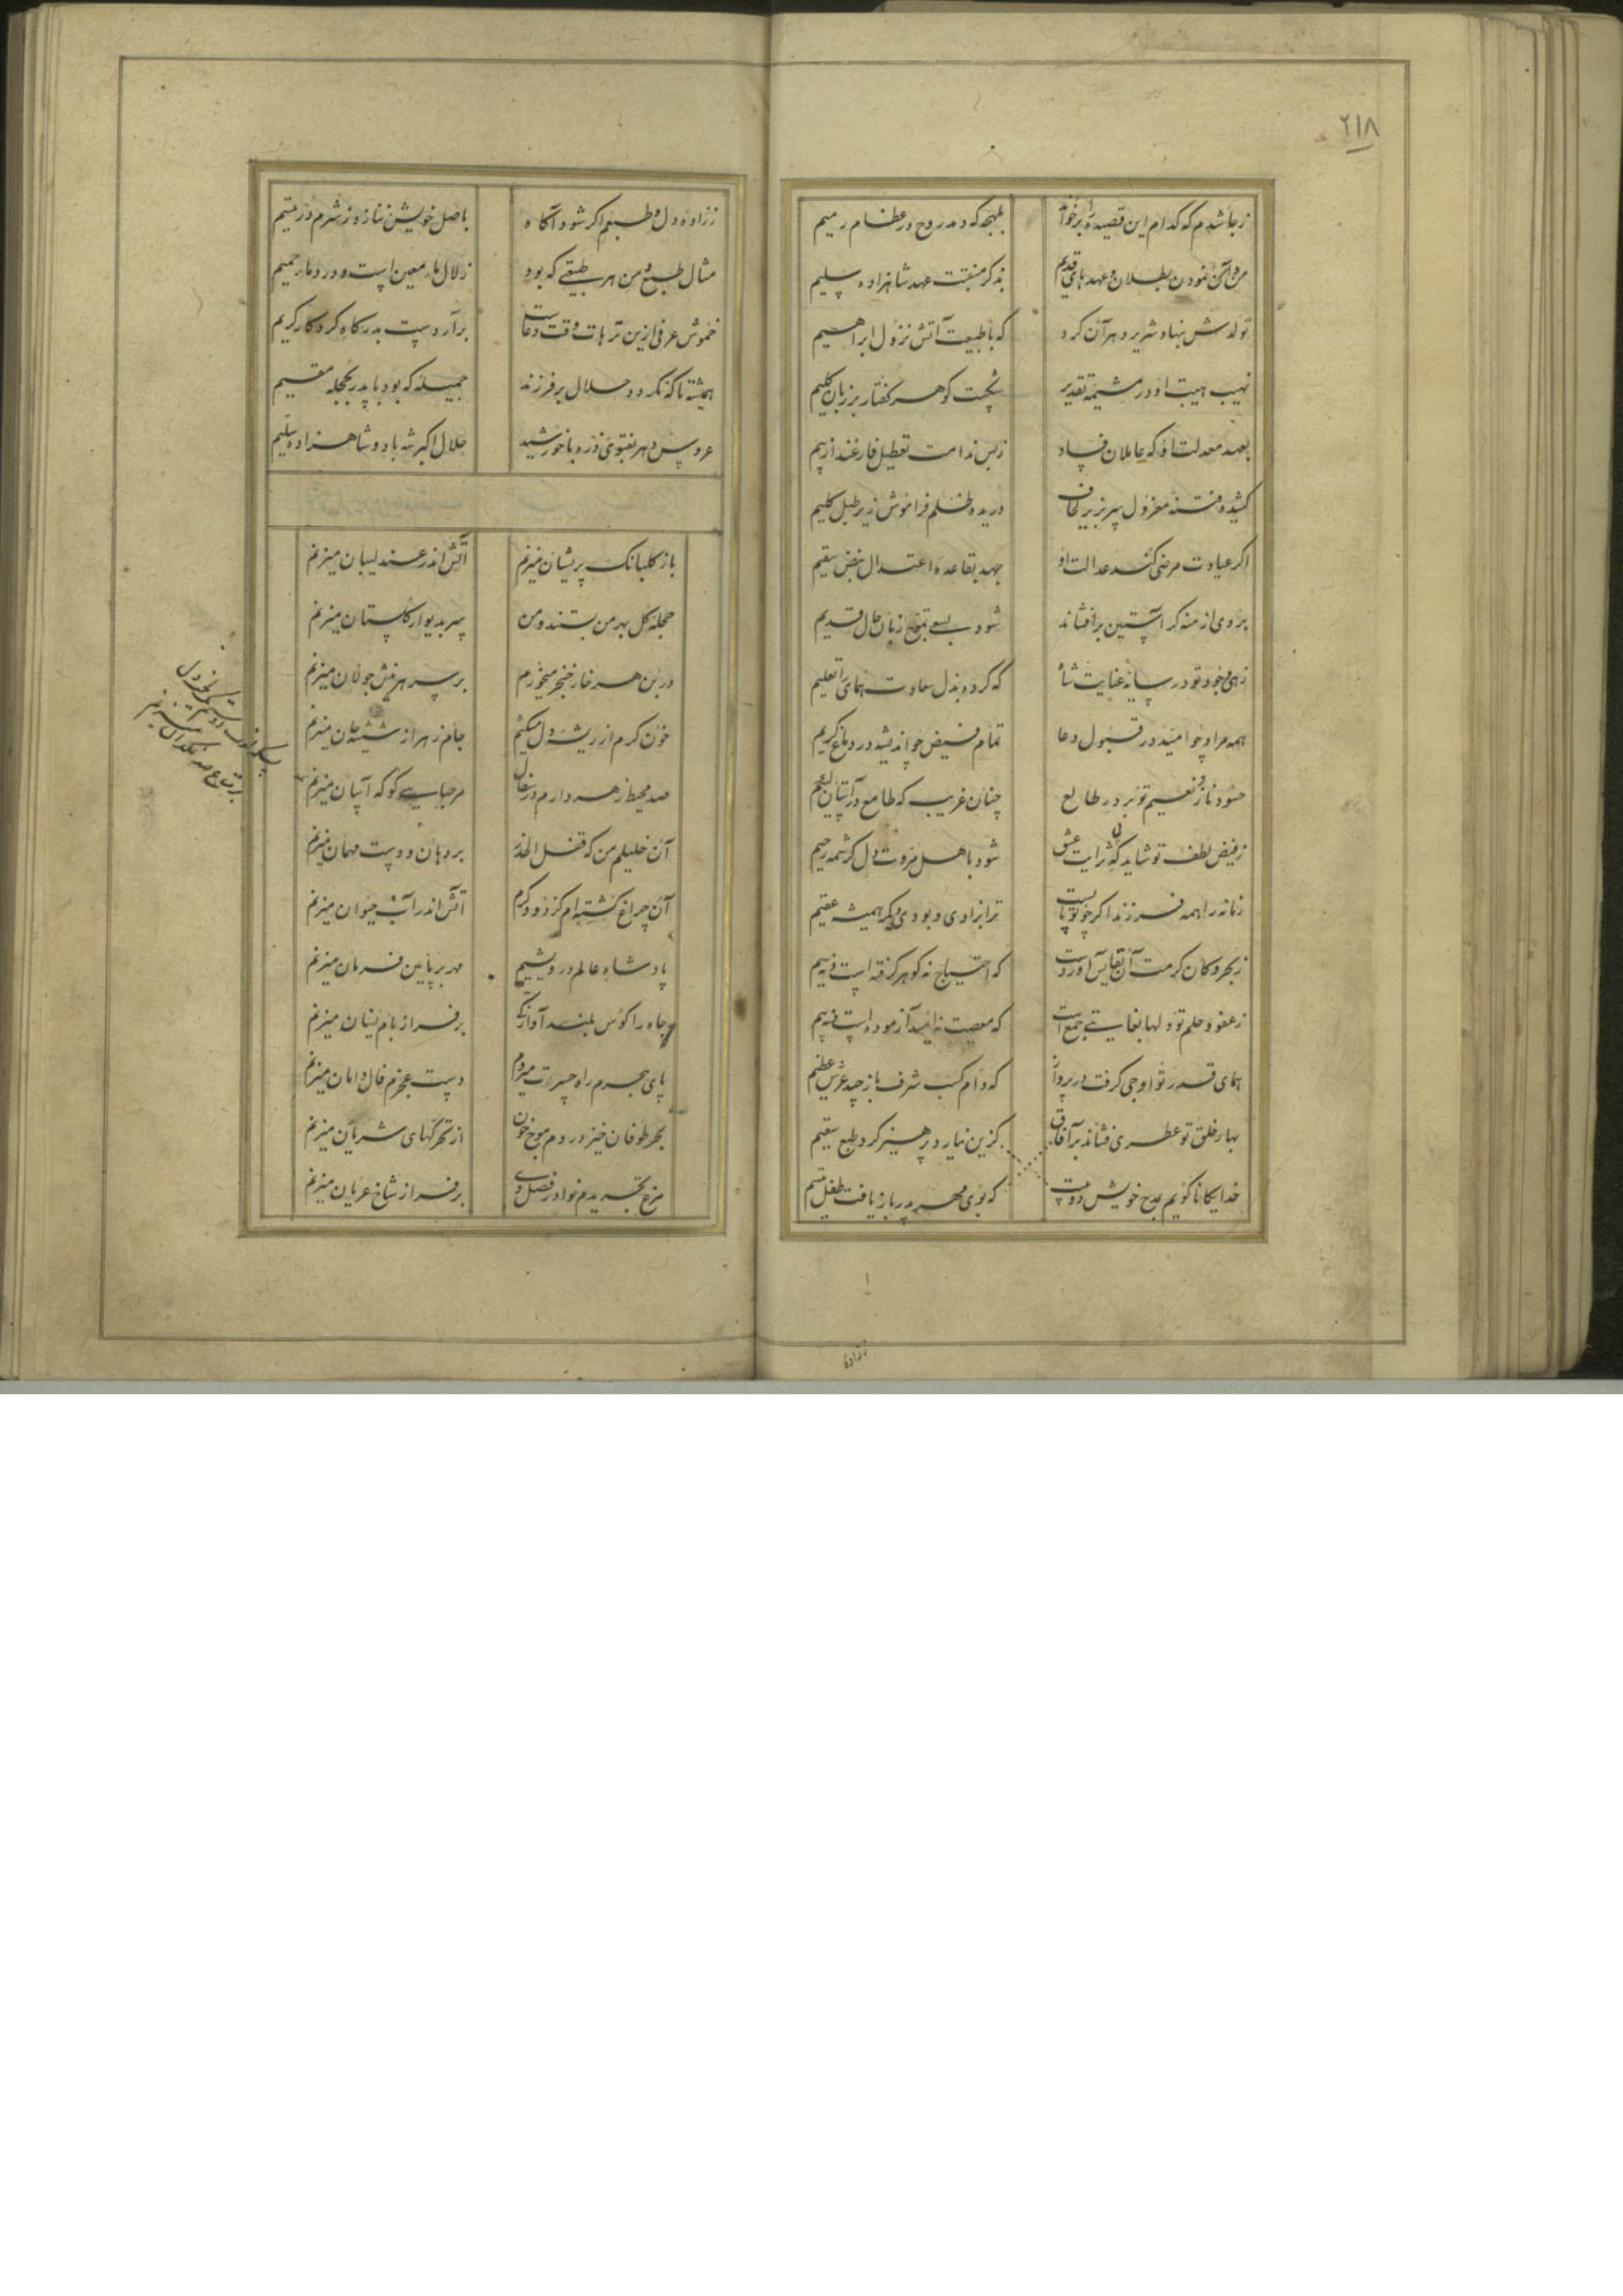 ۲۱۸
ز جا شدم که کدام این قصیده را برخواند بلهجه که دمد روح در عظام رمیم
بذکر منقبت عهد شاهزاده سلیم
تولدش بنهاد شریر دهر آن کرد که با طبیعت آتش نزول ابراهیم
نهیب هیبت او در مشیمه تقدیر نخست گوهر گفتار بر زبان کلیم
بعهد معدلت او که عاملان فساد ز بس ندامت تعطیل فارغند از بیم
کشیده فتنه معزول سر بزیر لحاف دریده ظلم فراموش زیر طبل گلیم
اگر عیادت مرضی کند عدالت او جهد بقاعده اعتدال نبض سقیم
بروی ازمنه گر آستین برافشاند شود بسعی زبان حال قدیم
زهی وجود تو در سایه عنایت شاه که کرده بذل سعادت همای را تعلیم
همه مراد چو امید در قبول دعا تمام فیض چو اندیشه در دماغ کریم
حسود ناز و نعیم تو بر در طالع چنان غریب که طامع در آستان لئیم
ز فیض لطف تو شاید که نثرایت عشق شود باهل مروت دل کرشمه رحیم
زمانه را همه فرزند اگر چو تو بایست ترا بزادی و بودی دگر همیشه عقیم
ز بحر و کان کرمت آن نفایس آوردست که احتیاج نه گوهر گرفته است نه سیم
ز عفو و حلم تو دلها بغایتی جمع است که معصیت نه امید آزموده است نه بیم
همای قدر تو اوجی گرفت در پرواز که دام کسب شرف باز چید عرش عظیم
بهار خلق تو عطری فشاند بر آفاق کزین نیارد پرهیز کرد طبع سقیم
خدایگانا گویم مدح خویش دو بیت که بوی مهر پدر باز یافت طفل یتیم
زاده
ز زاده دل و طبعم اگر شود آگاه باصل خویش ننازد ز شرم در یتیم
مثال طبع من هر طبیعتی که بود زلال ماء معین است و درد ماء حمیم
خموش عرفی ازین ترهات وقت دعاست برآر دست بدرگاه کردگار کریم
همیشه تا که نگردد حلال بر فرزند جمیله که بود با پدر بحجله مقیم
عروس دهر بفتوی ذره با خورشید حلال اکبر شه باد و شاهزاده سلیم
باز گلبانک پریشان میزنم آتش اندر عندلیبان میزنم
حجله گل بهر من بستند و من سر بدیوار گلستان میزنم
در بن هر خار خنجر میخورم بر سر هر نیش جولان میزنم
خون گرم از ریشه دل میکشم جام زهر از شیشه جان میزنم
صد محیط زهر دارم در سفال مرحبایی گو که آسان میزنم
آن خلیلم من که قفل الحذر بر دهان دوست مهمان میزنم
آن چراغ کشته ام کز دود گرم آتش اندر آب حیوان میزنم
پادشاه عالم درویشیم مهر بر پایین فرمان میزنم
جاه را کوس بلند آوازگی بر فراز بام نسیان میزنم
پای جرم راه حسرت میروم دست عجزم فال دامان میزنم
بحر طوفان خیز دردم موج خون از تحرک‌های شریان میزنم
مرغ تجریدم نوا در فصل دی بر فراز شاخ عریان میزنم